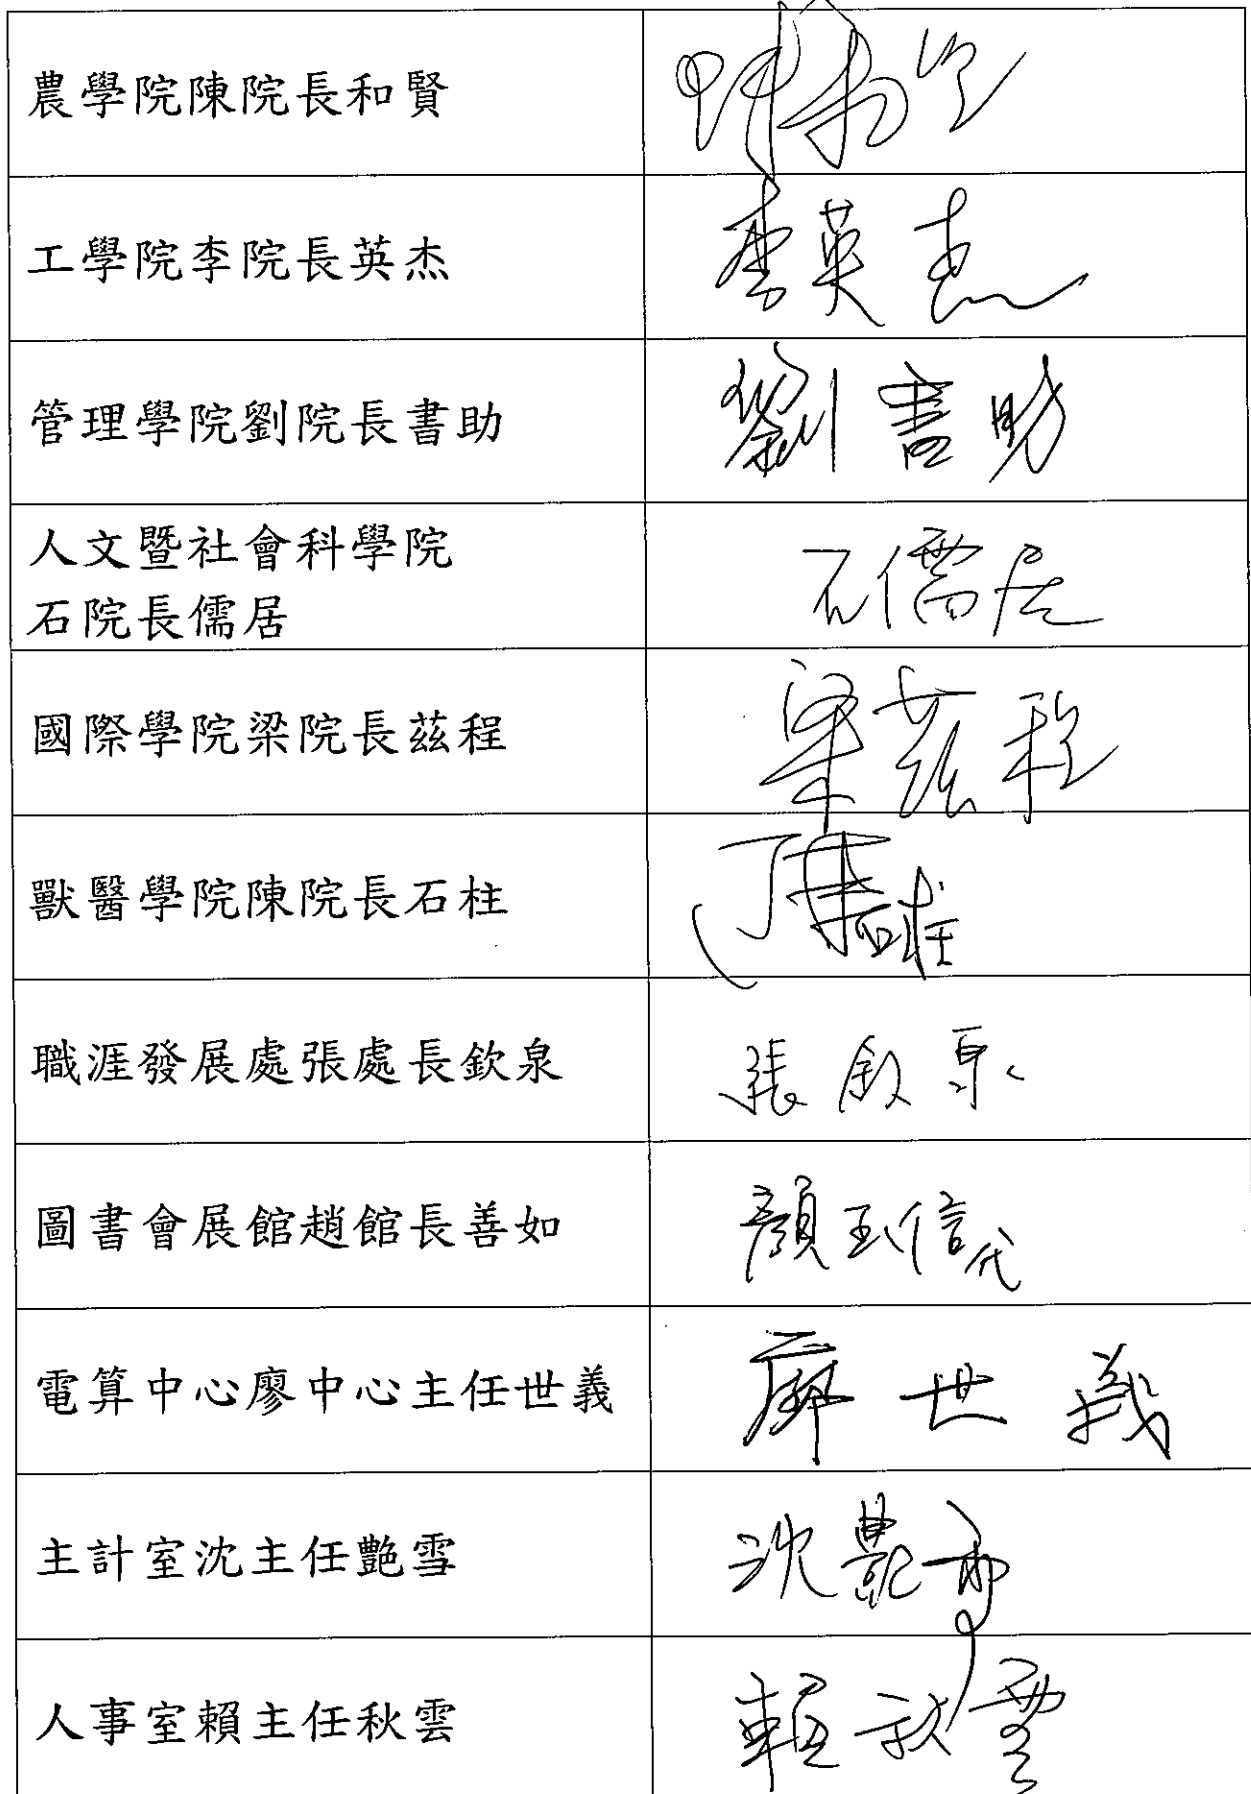 農學院陳院長和賢
工學院李院長英杰
李英杰
管理學院劉院長書助
劉書助
人文暨社會科學院
石院長儒居
石儒居
國際學院梁院長茲程
梁茲程
獸醫學院陳院長石柱
陳石柱
職涯發展處張處長欽泉
張欽泉
圖書會展館趙館長善如
電算中心廖中心主任世義
廖世義
主計室沈主任艷雪
沈艷雪
人事室賴主任秋雲
賴秋雲